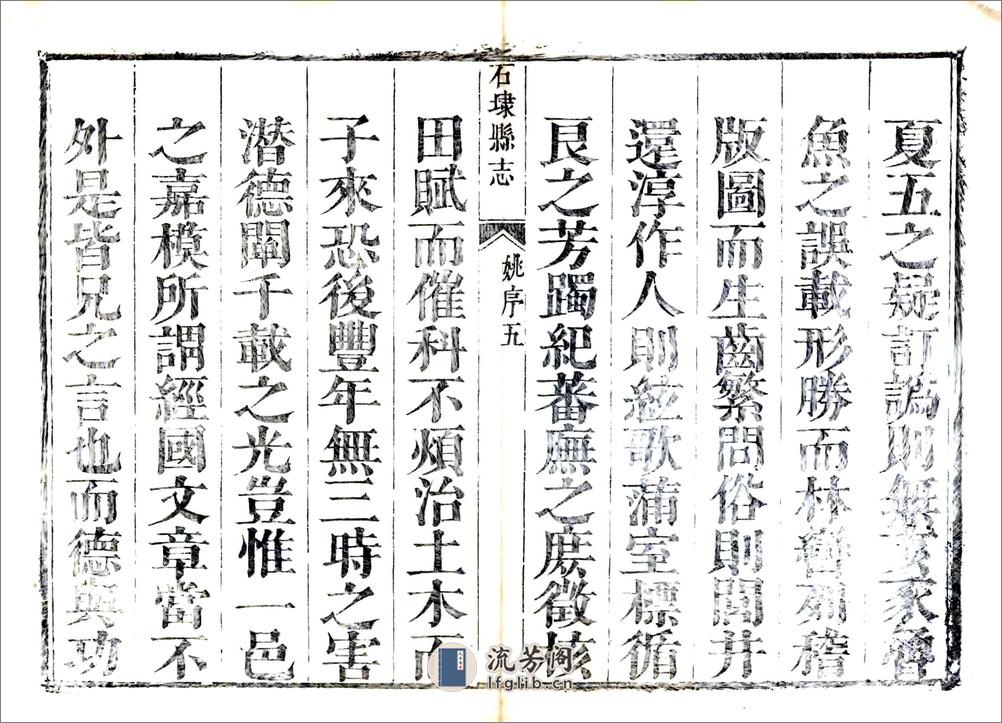 夏五之疑訂譌則無亥豕魯
魚之誤載形勝而林巒列稽
版圖而生齒繁問俗則閭井
還淳作人則絃歌蒲室標循
良之芳躅紀蕃廡之庶徵核
石埭縣志
姚序五
田賦而催科不煩治土木而
子來恐後豐年無三時之害
潛德闡千載之光豈惟一邑
之嘉模所謂經國文章當不
外是皆兄之言也而德與功
流芳阁
lfglib.cn